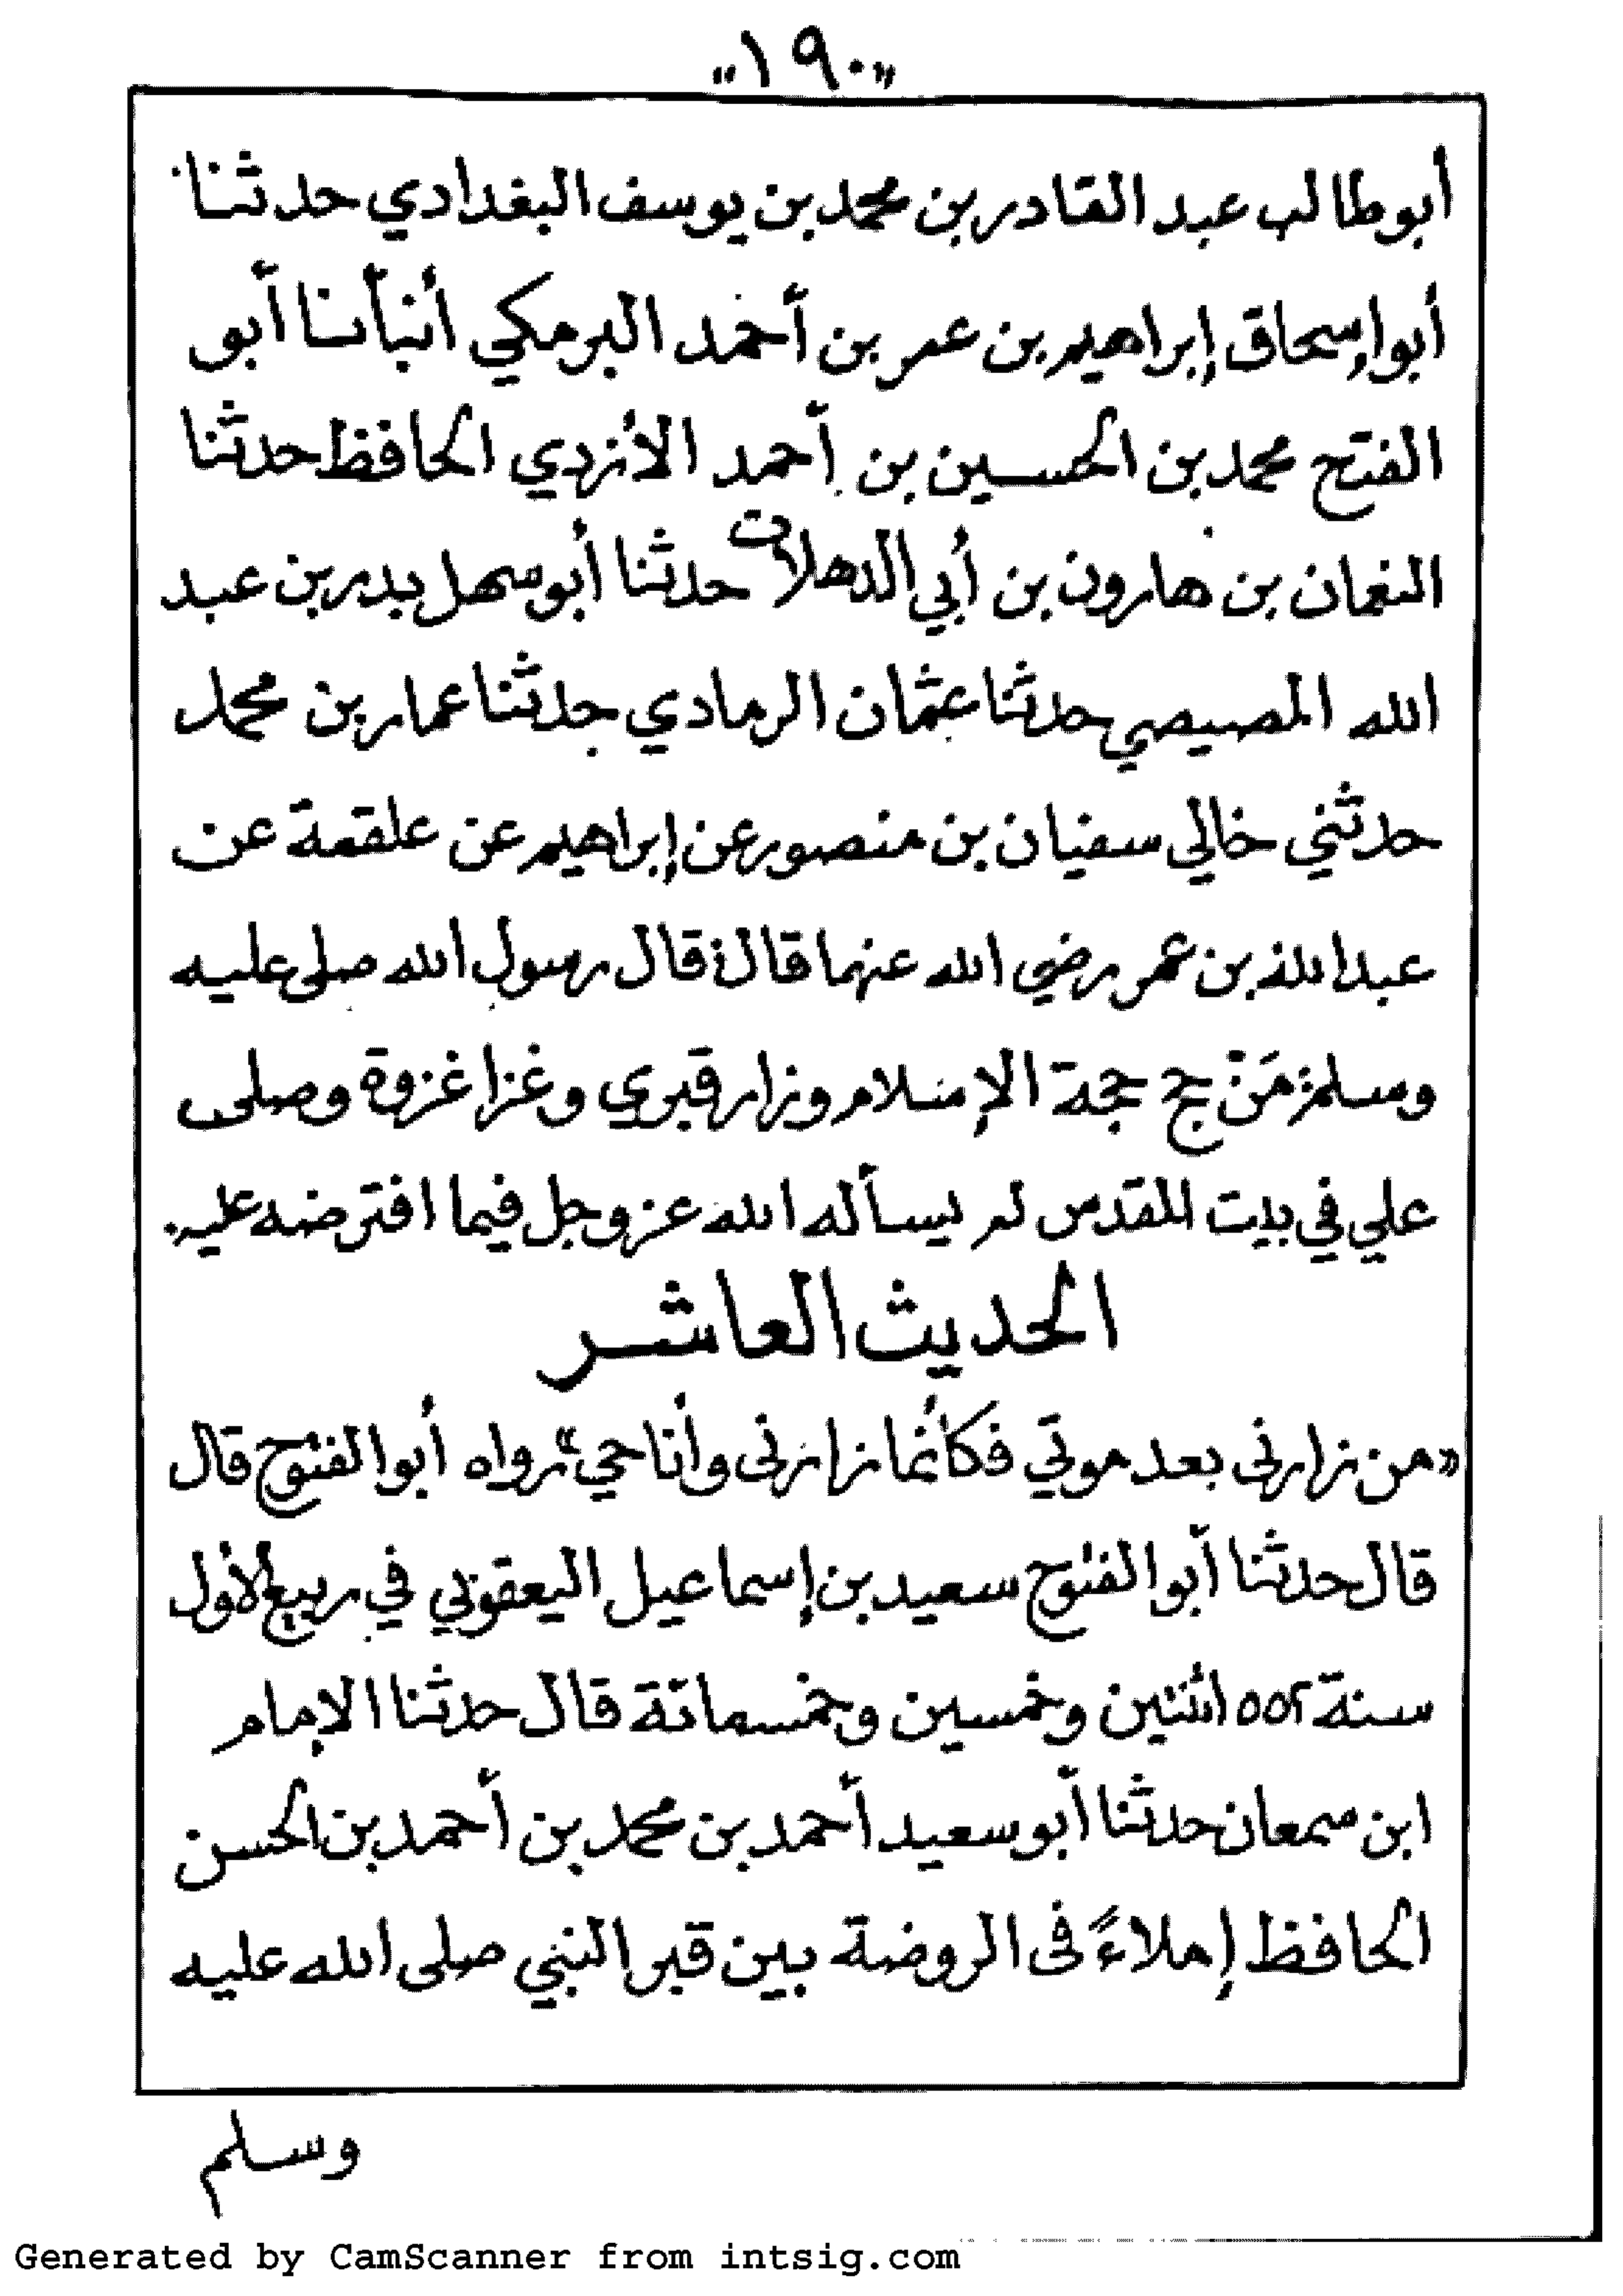 "١٩٠"
أبو طالب عبد القادر بن محمد بن يوسف البغدادي حدثنا
أبو إسحاق إبراهيم بن عمر بن أحمد البرمكي أنبأنا أبو
الفتح محمد بن الحسين بن أحمد الأزدي الحافظ حدثنا
النعمان بن هارون بن أبي الدهلات حدثنا أبو سهل بدر بن عبد
الله المصيصي حدثنا عثمان الرمادي حدثنا عمار بن محمد
حدثني خالي سفيان بن منصور عن إبراهيم عن علقمة عن
عبد الله بن عمر رضي الله عنهما قال: قال رسول الله صلى عليه
وسلم: مَنْ حج حجة الإسلام وزار قبري وغزا غزوة وصلى
علي في بيت المقدس لم يسأله الله عز وجل فيما افترضه عليه.
الحديث العاشر
«من زارنى بعد موتي فكأنما زارنى وأنا حي» رواه أبو الفتوح قال
قال حدثنا أبو الفتوح سعيد بن إسماعيل اليعقوبي في ربيع الأول
سنة ٥٥٢ اثنين وخمسين وخمسمائة قال حدثنا الإمام
ابن سمعان حدثنا أبو سعيد أحمد بن محمد بن أحمد بن الحسن
الحافظ إملاءً فى الروضة بين قبر النبي صلى الله عليه
وسلم
Generated by CamScanner from intsig.com